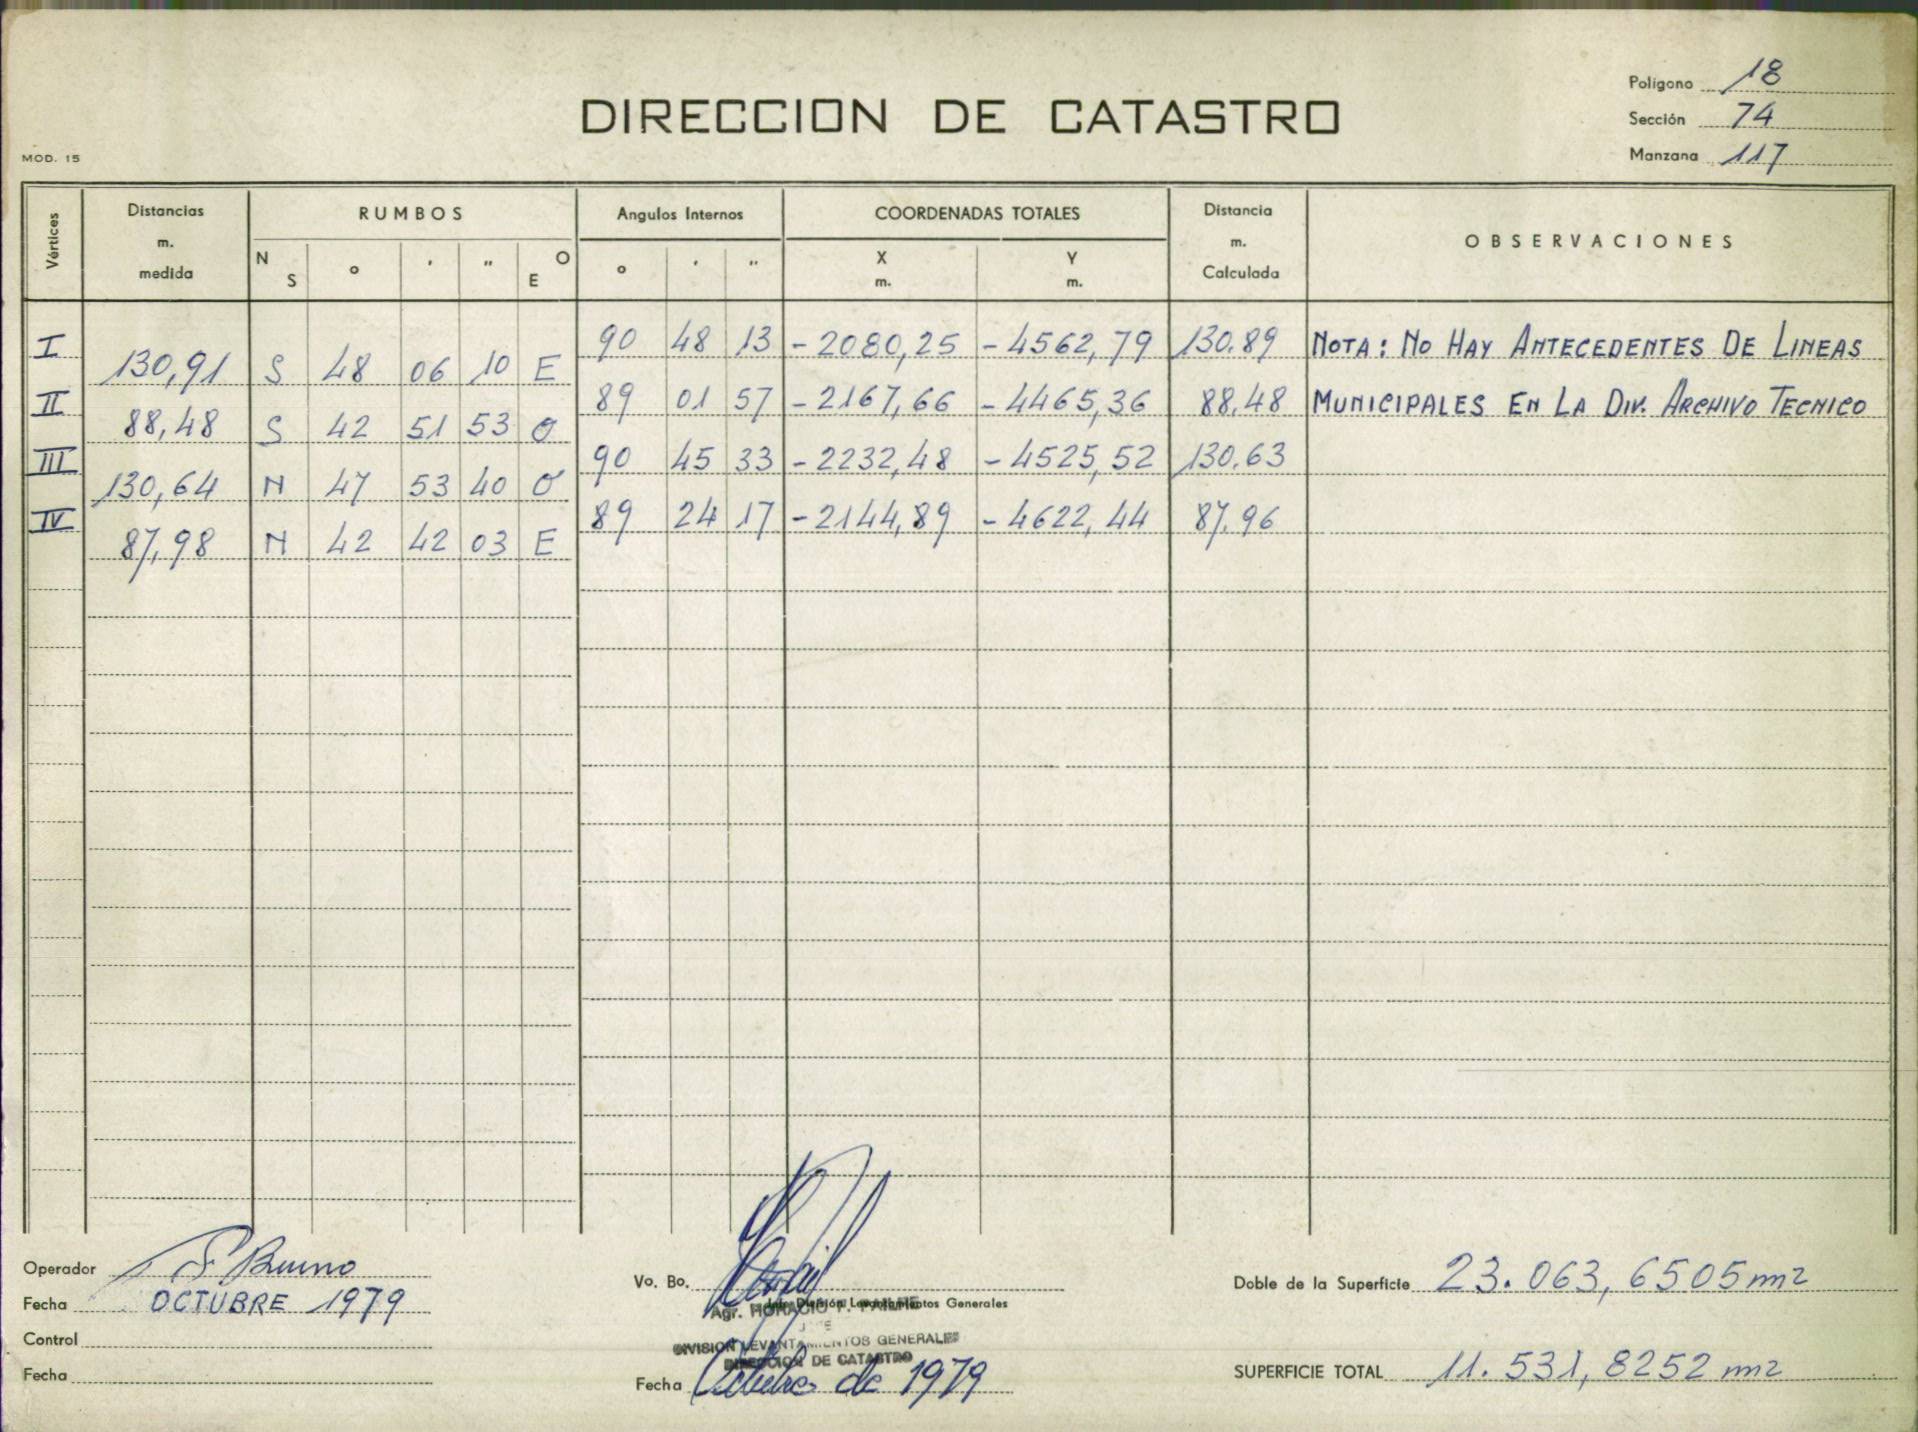 Polígono 18
DIRECCION DE CATASTRO
Sección 74
MOD. 15
Manzana 117
Vértices
Distancias m. medida
RUMBOS
Angulos Internos
COORDENADAS TOTALES
Distancia m. Calculada
OBSERVACIONES
N S ° ' " O E
° ' "
X m.
Y m.
I 90 48 13 -2080,25 -4562,79 130.89 NOTA: NO HAY ANTECEDENTES DE LINEAS
130,91 S 48 06 10 E
II 89 01 57 -2167,66 -4465,36 88,48 MUNICIPALES EN LA DIV. ARCHIVO TECNICO
88,48 S 42 51 53 O
III 90 45 33 -2232,48 -4525,52 130.63
130,64 N 47 53 40 O
IV 89 24 17 -2144,89 -4622,44 87.96
87,98 N 42 42 03 E
Operador Bruno
Vo. Bo.
Doble de la Superficie 23.063,6505 m2
Fecha OCTUBRE 1979
División Levantamientos Generales
Agr. HORACIO F.
Control
DIVISION LEVANTAMIENTOS GENERALES
DIRECCION DE CATASTRO
Fecha
Fecha Octubre de 1979
SUPERFICIE TOTAL 11.531,8252 m2